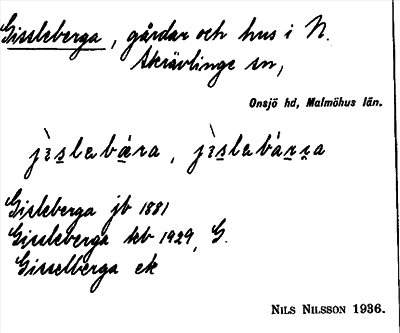 Gissleberga, gårdar och hus i N.
Skrävlinge sn,
Onsjö hd, Malmöhus län.
Gisleberga jb 1881
Gissleberga kb 1929, G.
Gisselberga ek
NILS NILSSON 1936.